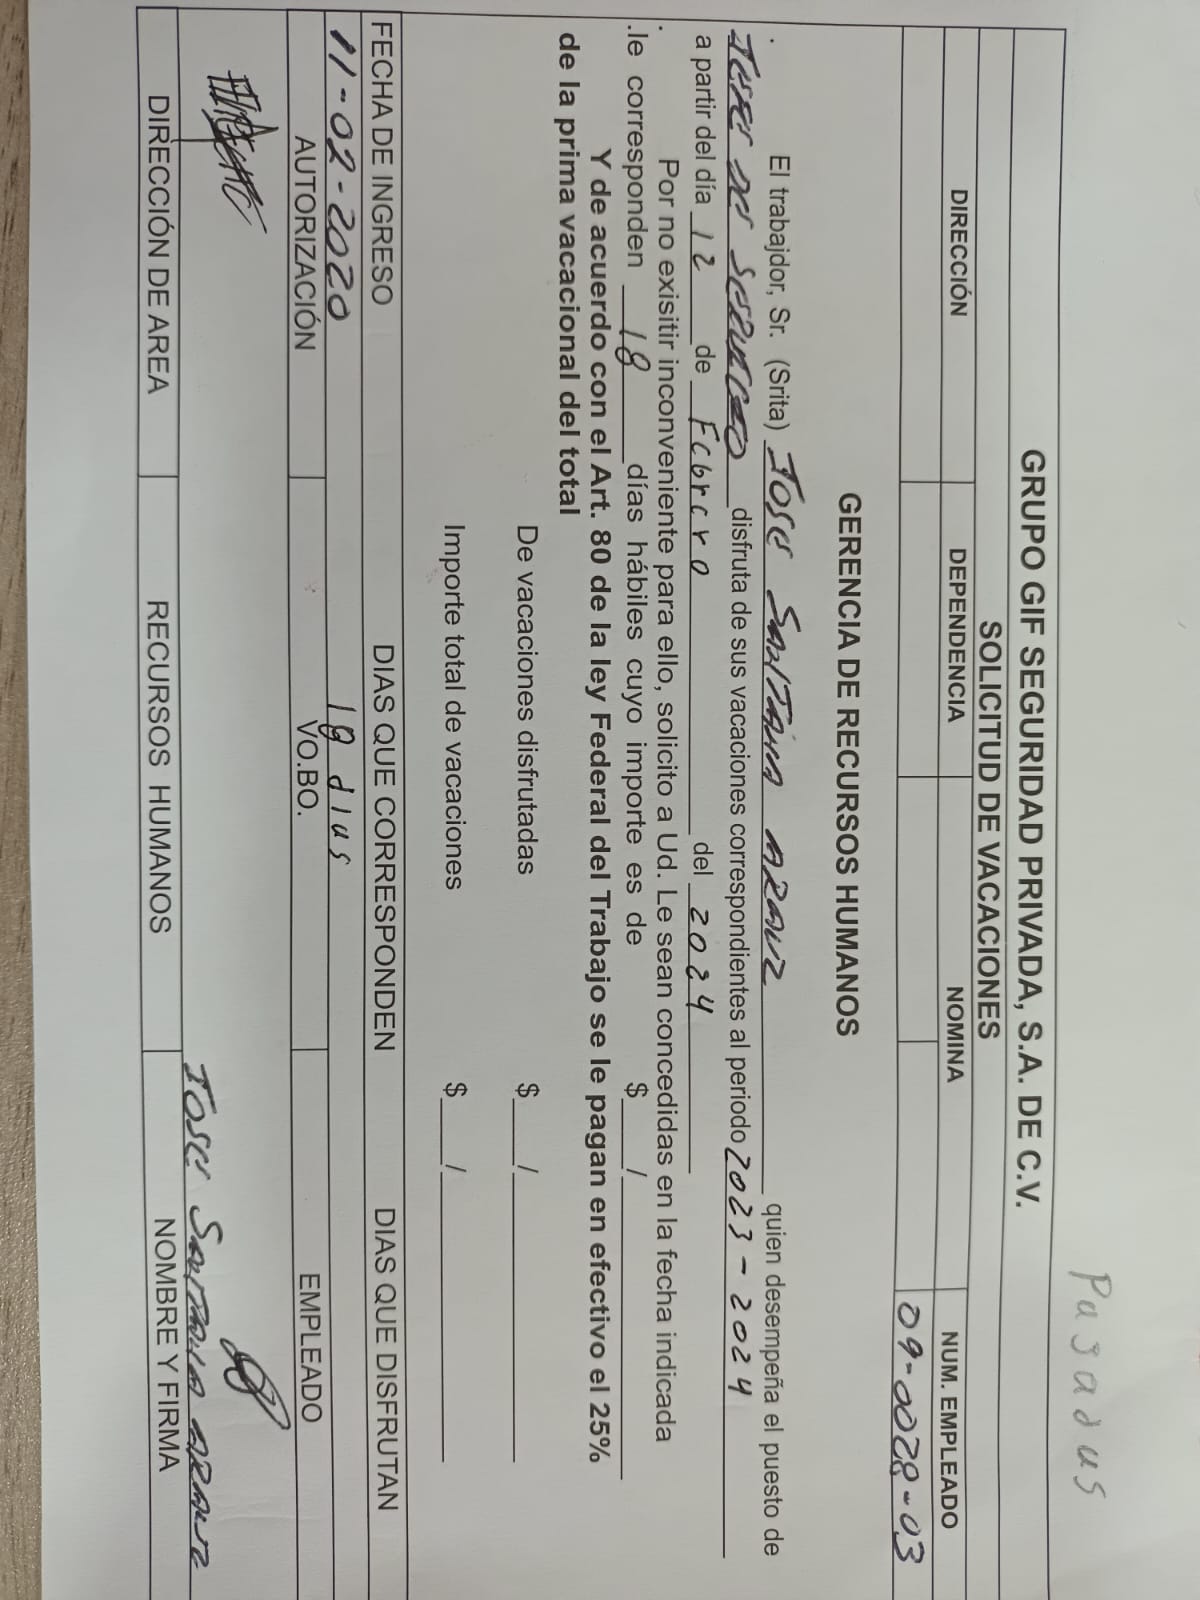 Pagadas
GRUPO GIF SEGURIDAD PRIVADA, S.A. DE C.V.
SOLICITUD DE VACACIONES
DIRECCIÓN DEPENDENCIA NOMINA NUM. EMPLEADO
09-0028-03
GERENCIA DE RECURSOS HUMANOS
. El trabajdor, Sr. (Srita) JOSE SANTANA ARAUZ quien desempeña el puesto de
JEFE DE SERVICIO disfruta de sus vacaciones correspondientes al periodo 2023 - 2024
a partir del día 12 de Febrero del 2024
. Por no exisitir inconveniente para ello, solicito a Ud. Le sean concedidas en la fecha indicada
.le corresponden 18 días hábiles cuyo importe es de $____/____
Y de acuerdo con el Art. 80 de la ley Federal del Trabajo se le pagan en efectivo el 25%
de la prima vacacional del total
De vacaciones disfrutadas $____/____
Importe total de vacaciones $____/____
FECHA DE INGRESO DIAS QUE CORRESPONDEN DIAS QUE DISFRUTAN
11-02-2020 18 dias
AUTORIZACIÓN VO.BO. EMPLEADO
JOSE SANTANA ARAUZ
DIRECCIÓN DE AREA RECURSOS HUMANOS NOMBRE Y FIRMA